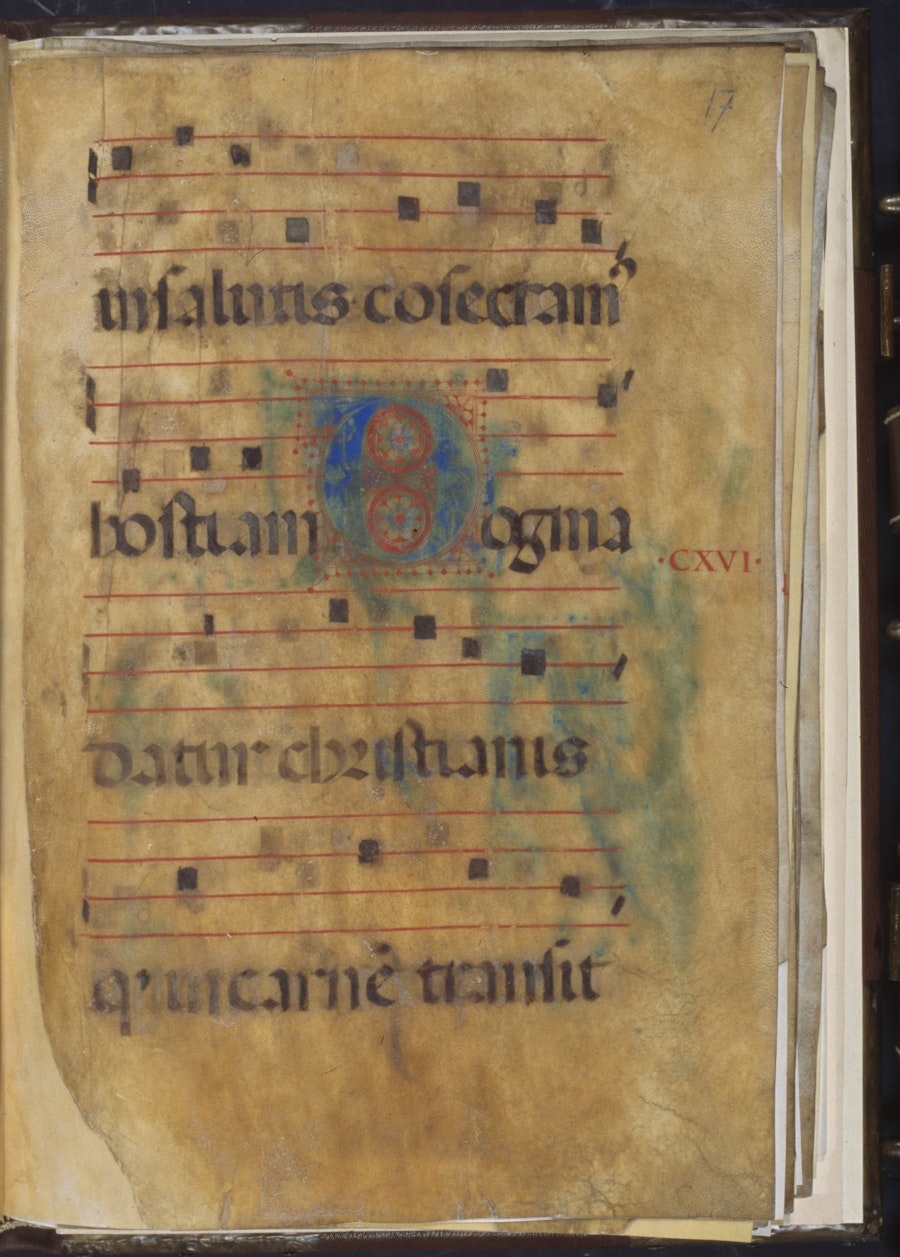 17
in salutis cosecram̃
hostiam Dogma
·CXVI·
datur christianis
qꝰ in carnē transit